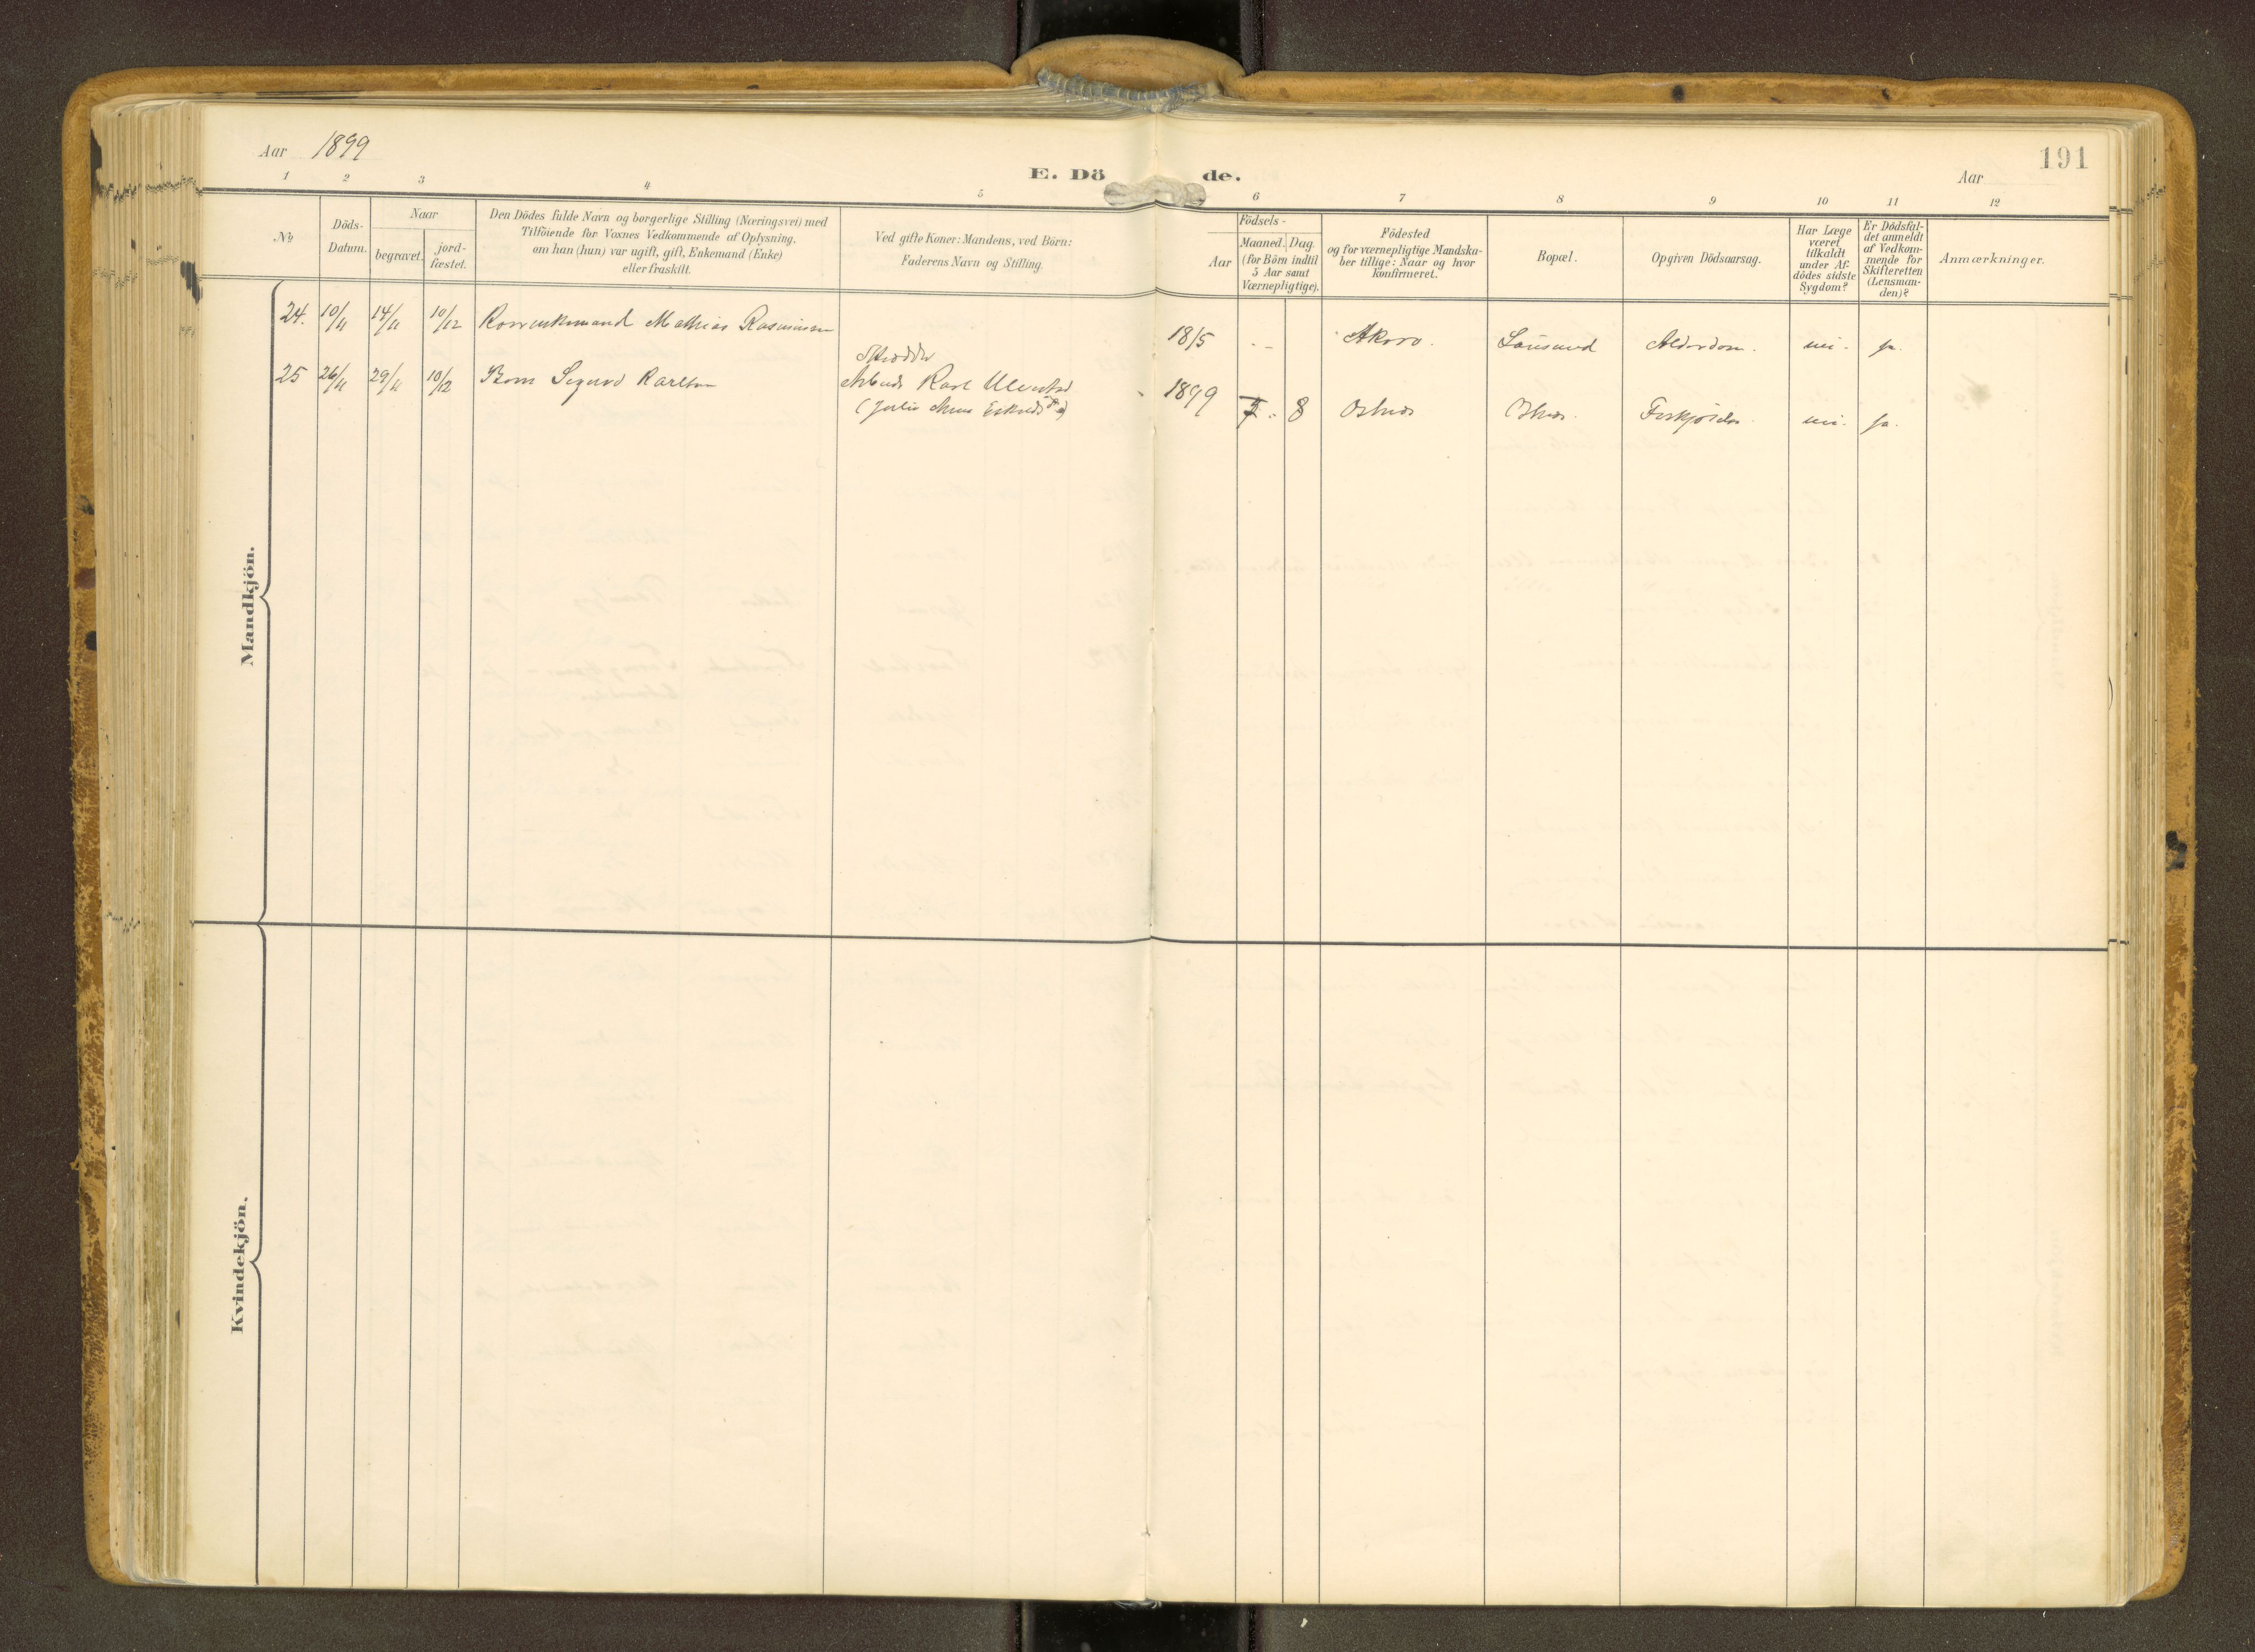 Aar 1899
191
E. Dö de.
Aar
1 2 3 4 5 6 7 8 9 10 11 12
No
Döds-
Datum.
Naar
begravet.
jord-
fæstet.
Den Dödes fulde Navn og borgerlige Stilling (Næringsvei) med
Tilföiende for Voxnes Vedkommende af Oplysning,
om han (hun) var ugift, gift, Enkemand (Enke)
eller fraskilt.
Ved gifte Koner: Mandens, ved Börn:
Faderens Navn og Stilling.
Födsels-
Aar
Maaned. Dag.
(for Börn indtil
5 Aar samt
Værnepligtige).
Födested
og for værnepligtige Mandska-
ber tillige: Naar og hvor
konfirmeret.
Bopæl.
Opgiven Dödsaarsag.
Har Læge
været
tilkaldt
under Af-
dödes sidste
Sygdom?
Er Dödsfal-
det anmeldt
af Vedkom-
mende for
Skifteretten
(Lensman-
den)?
Anmærkninger.
24. 10/11 14/11 10/12 Mathias Rasmussen 1815 - - Akerø. Alderdom. nei. ja.
25 26/11 29/11 10/12 Barn Sigurd Karlsen
Arbeid. Karl
(Julie
1899 8 nei. ja.
Mandkjön.
Kvindekjön.